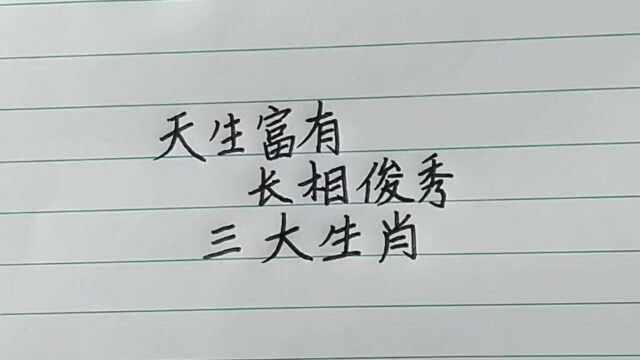 天生富有
长相俊秀
三大生肖